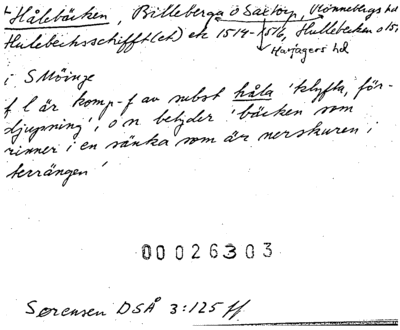 Hålebäcken, Billeberga o Saxtorp, Rönnebergs hd
Hulebechsschifft(et) etc 1514-1516, Hullebecken o 15
Harjagers hd
i SMöinge
f l är komp-f av subst håla 'klyfta, för-
djupning', o n betyder 'bäcken som
rinner i en sänka som är nerskuren i
terrängen'
00026303
Sørensen DSÅ 3:125 ff